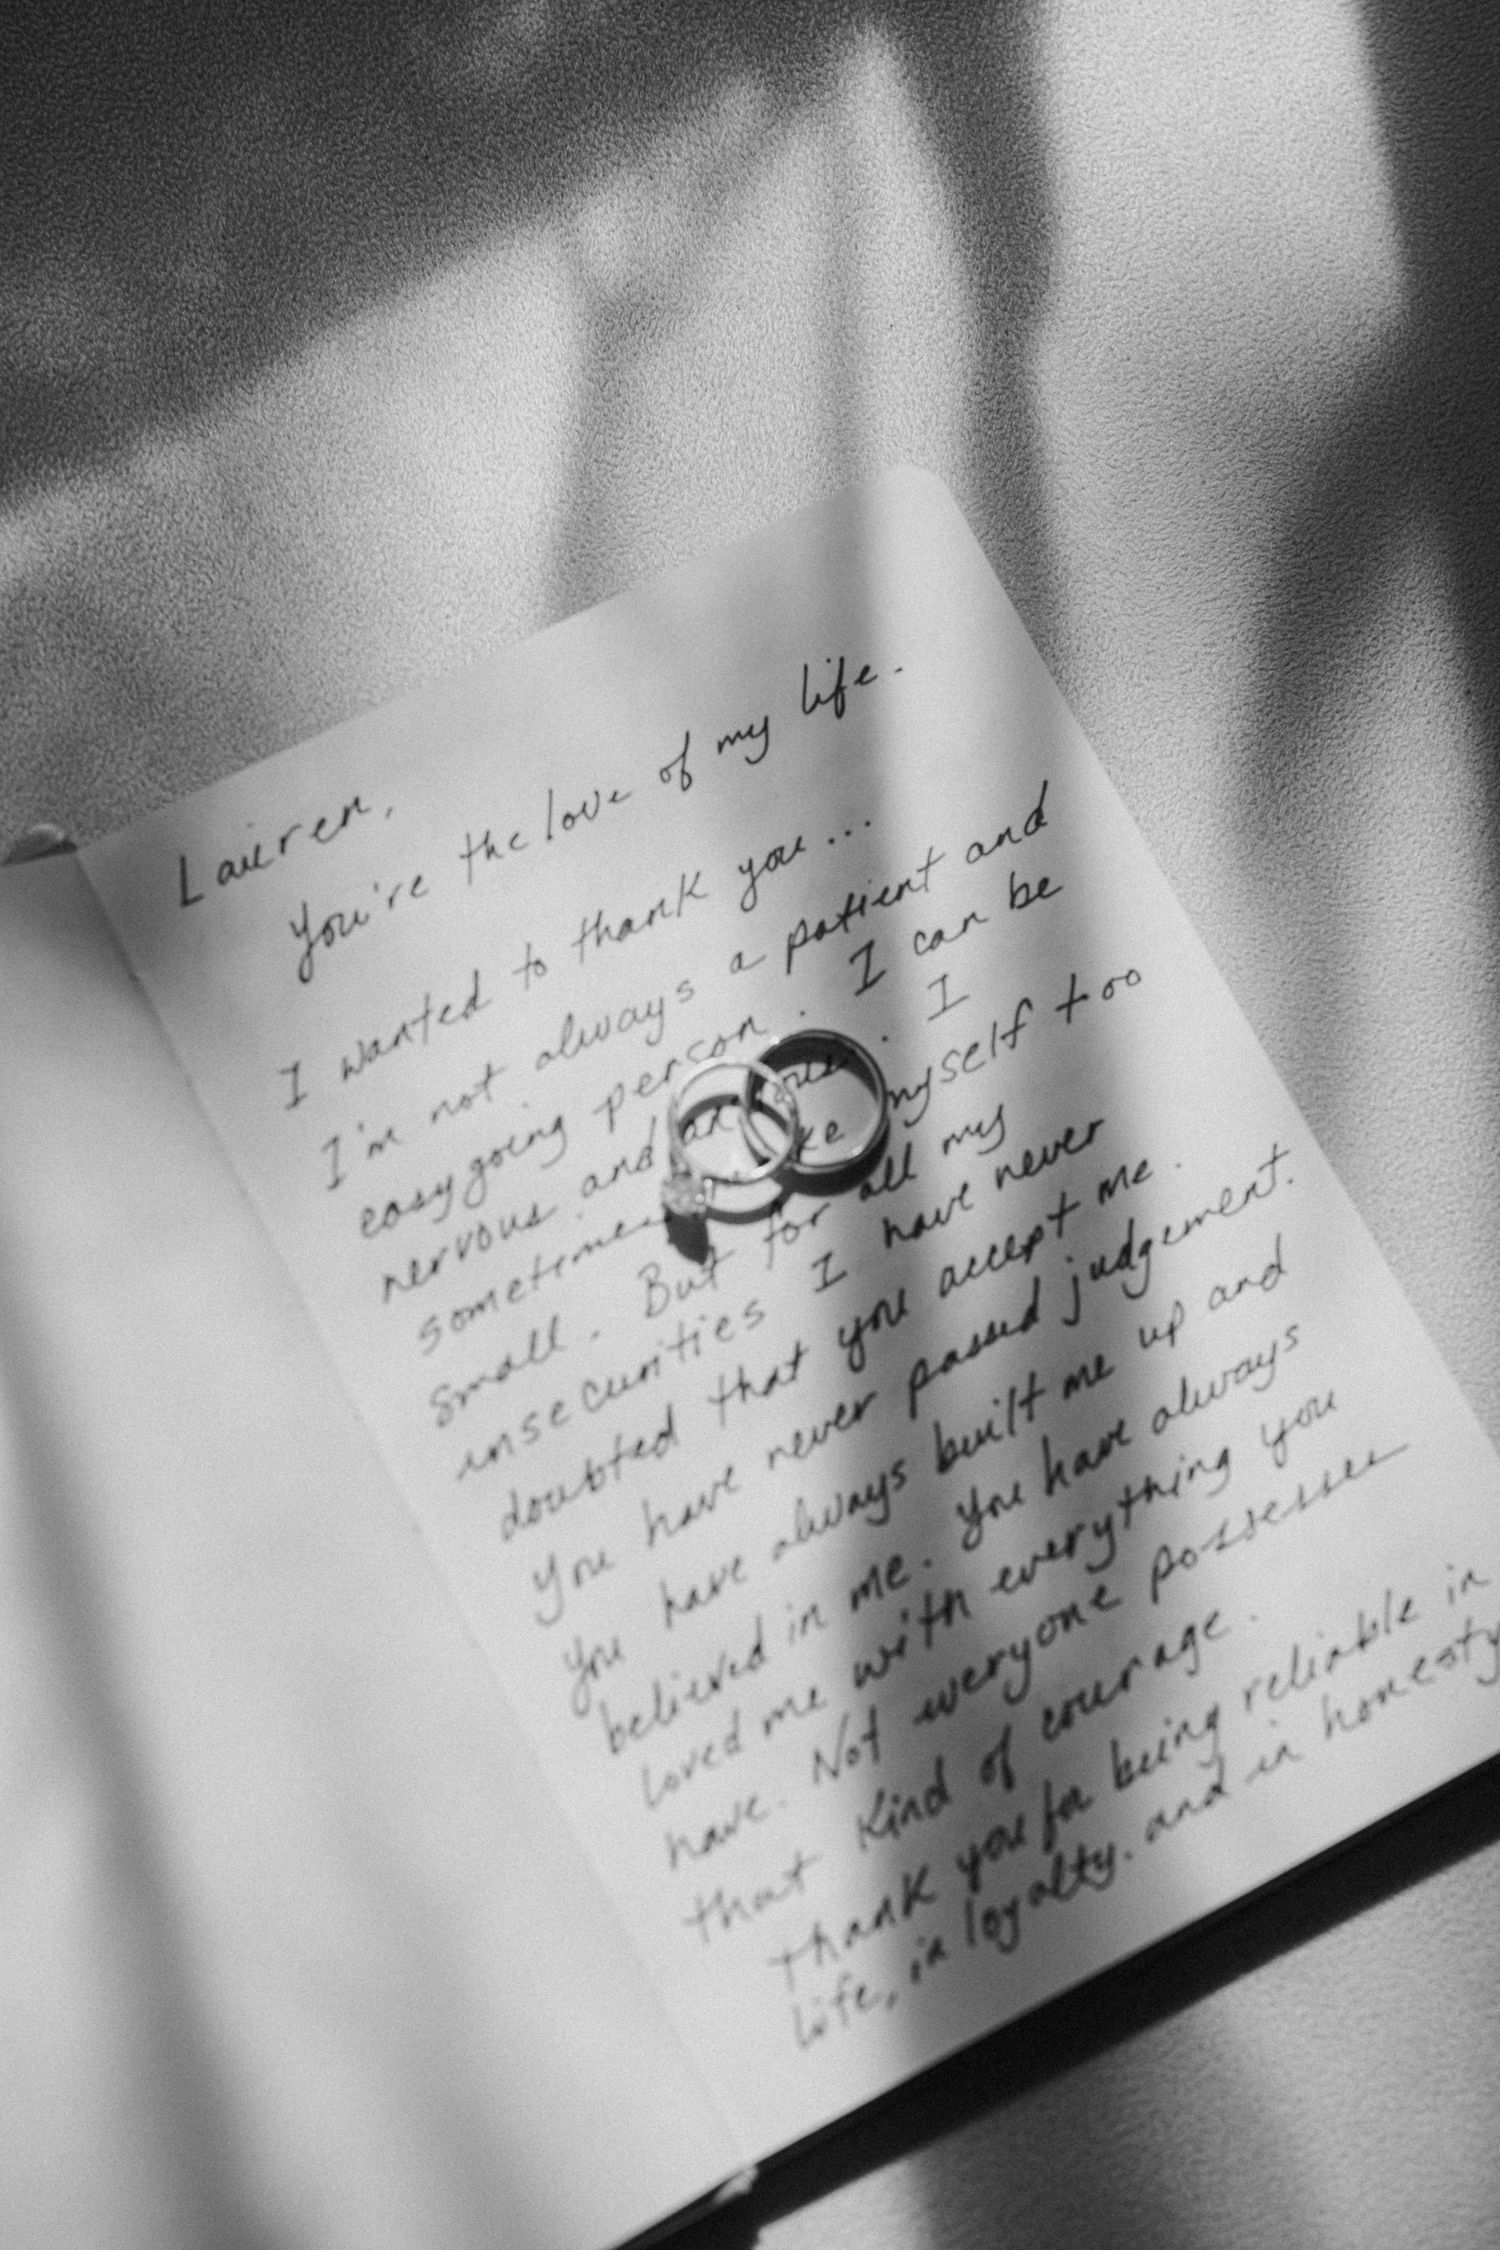 Lauren,
You're the love of my life.
I wanted to thank you...
I'm not always a patient and
easygoing person. I can be
nervous and anxious. I
sometimes make myself too
small. But for all my
insecurities I have never
doubted that you accept me.
You have never passed judgement.
You have always built me up and
believed in me. You have always
loved me with everything you
have. Not everyone possesses
that kind of courage.
Thank you for being reliable in
life, in loyalty, and in honesty